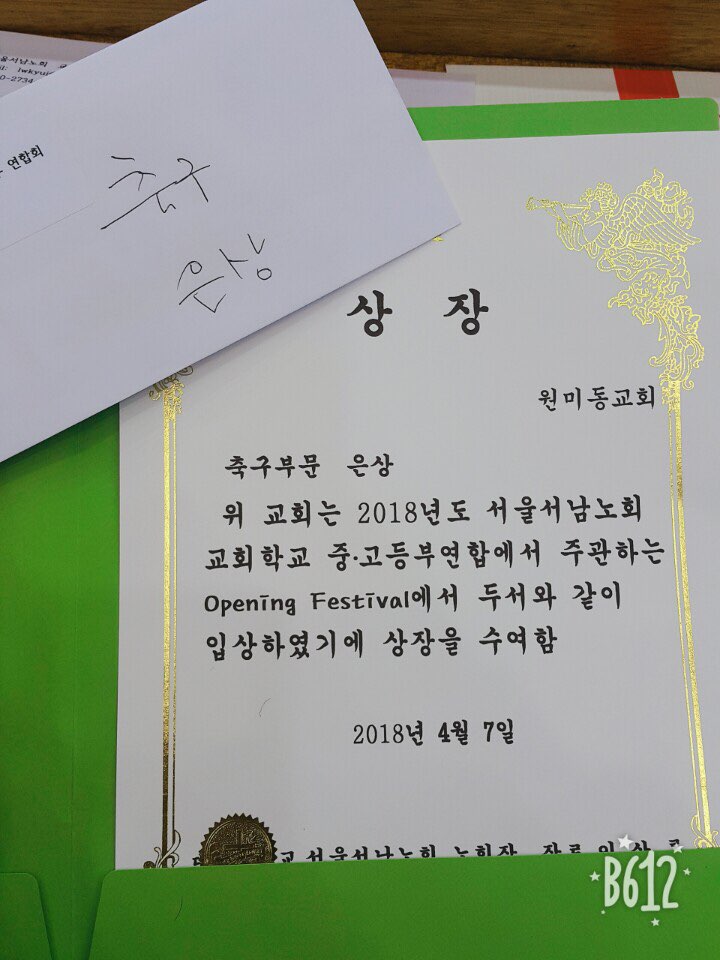 울서남노회
0-2734
연합회
축구
은상
상 장
원미동교회
축구부문 은상
위 교회는 2018년도 서울서남노회
교회학교 중·고등부연합에서 주관하는
Opening Festival에서 두서와 같이
입상하였기에 상장을 수여함
2018년 4월 7일
교 서울서남노회 노회장 장로 이 상
B612